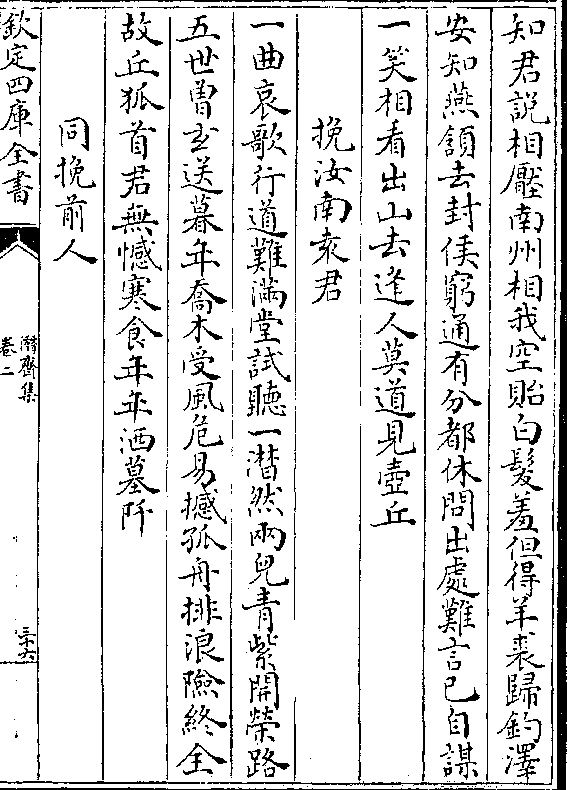 知君説相壓南州相我空貽白髮羞但得羊裘歸釣澤
安知燕頷去封侯窮通有分都休問出處難言已自謀
一笑相看出山去逢人莫道見壺丘
挽汝南袁君
一曲哀歌行道難滿堂試聽一潸然兩兒青紫開榮路
五世曾玄送暮年喬木受風危易撼孤舟排浪險終全
故丘狐首君無憾寒食年年洒墓阡
同挽前人
欽定四庫全書
潛齋集
卷二
三十六